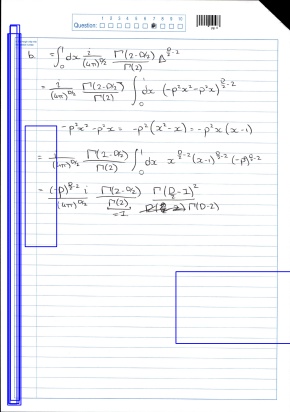 Question: 1 2 3 4 5 6 7 8 9 10
b. = ∫₀¹ dx i/(4π)^{D/2} Γ(2-D/2)/Γ(2) Δ^{D/2-2}
= i/(4π)^{D/2} Γ(2-D/2)/Γ(2) ∫₀¹ dx (-p²x²-p²x)^{D/2-2}
-p²x²-p²x = -p²(x²-x) = -p²x(x-1)
= i/(4π)^{D/2} Γ(2-D/2)/Γ(2) ∫₀¹ dx x^{D/2-2}(x-1)^{D/2-2} (-p²)^{D/2-2}
= (-p)^{D/2-2} i/(4π)^{D/2} Γ(2-D/2)/Γ(2) Γ(D/2-1)²/Γ(D-2)
=1